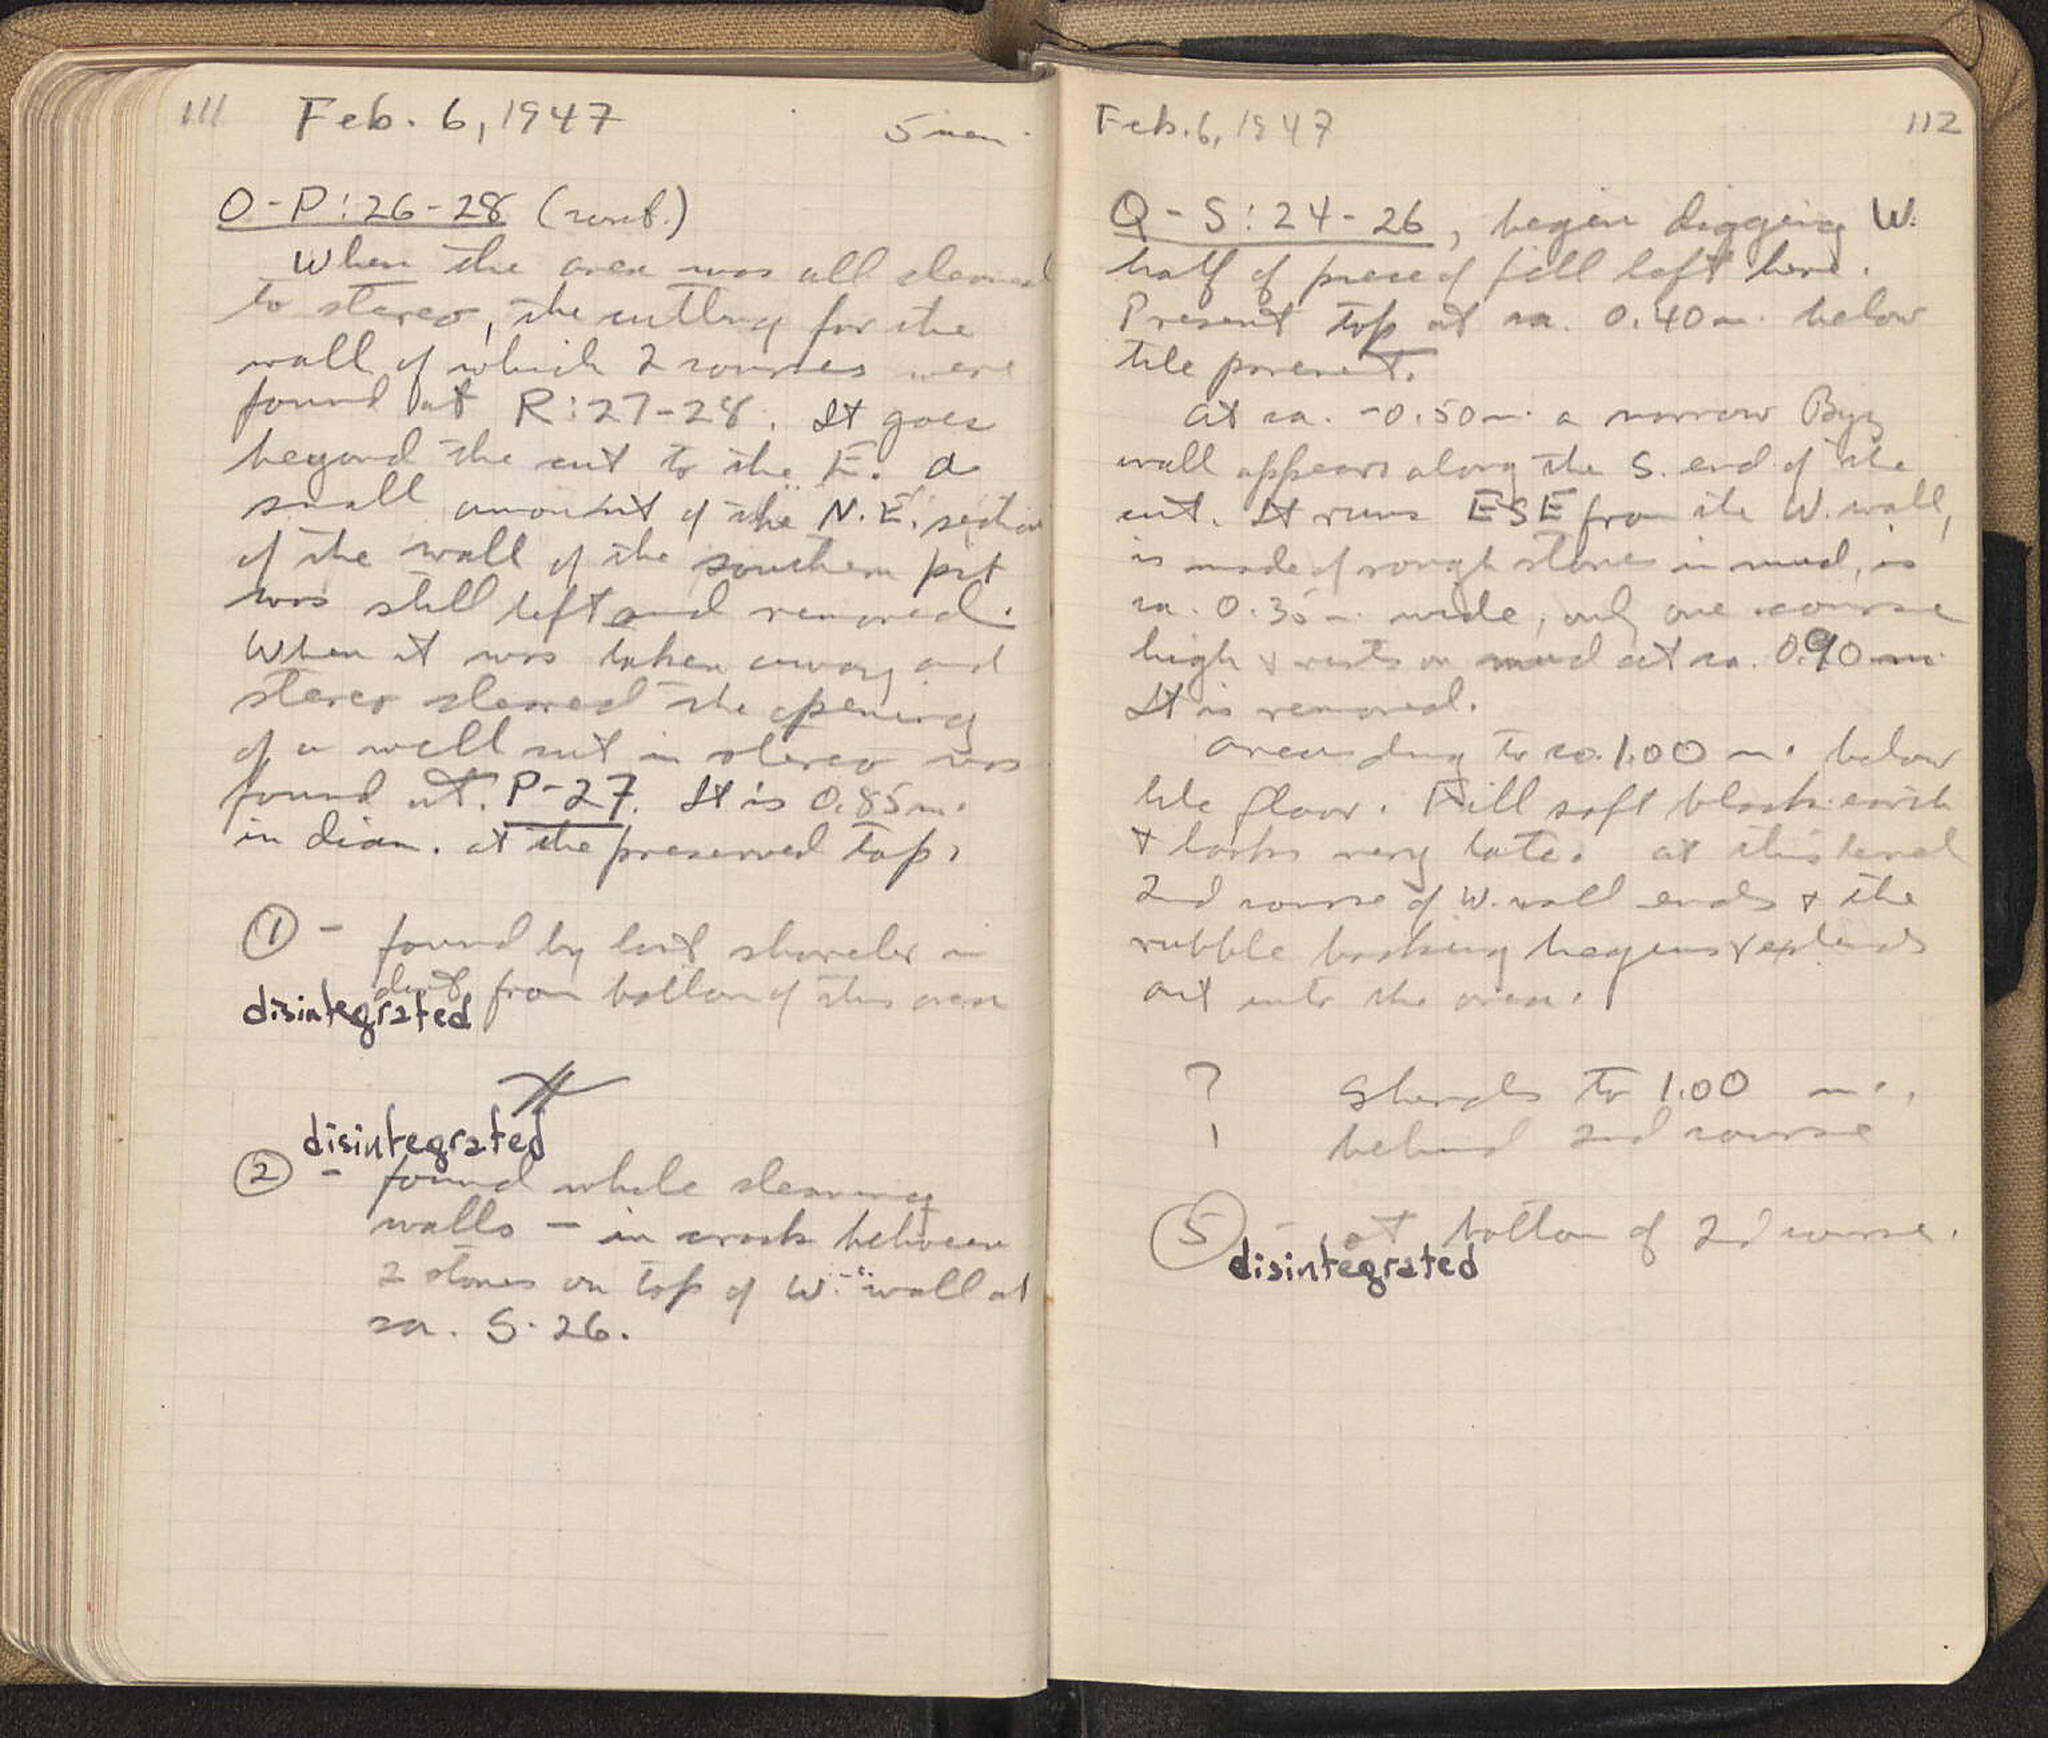 111 Feb. 6, 1947 5 men.
O-P:26-28 (cont.)
When the area was all cleared
to stereo, the cutting for the
wall of which 2 courses were
found at R:27-28. It goes
beyond the cut to the E. A
small amount of the N.E. section
of the wall of the southern pit
was still left and removed.
When it was taken away and
stereo cleared the opening
of a well cut in stereo was
found at P-27. It is 0.85 m.
in diam. at the preserved top.
① - found by last shoveler in
dirt from bottom of this area
disintegrated
disintegrated
② - found while cleaning
walls - in crack between
2 stones on top of W. wall at
ca. S-26.
Feb. 6, 1947 112
Q-S:24-26, begin digging W.
half of piece of fill left here.
Present top at ca. 0.40 m. below
tile pavement.
At ca. -0.50 m. a narrow Byz
wall appears along the S. end of the
cut. It runs ESE from the W. wall,
is made of rough stones in mud, is
ca. 0.35 m. wide, only one course
high & rests on mud at ca. 0.90 m.
It is removed.
Area dug to ca. 1.00 m. below
tile floor. Fill soft black earth
& looks very late. At this level
2nd course of W. wall ends & the
rubble backing begins & extends
out into the area.
? Sherds to 1.00 m.,
behind 2nd course
⑤ - at bottom of 2nd course.
disintegrated